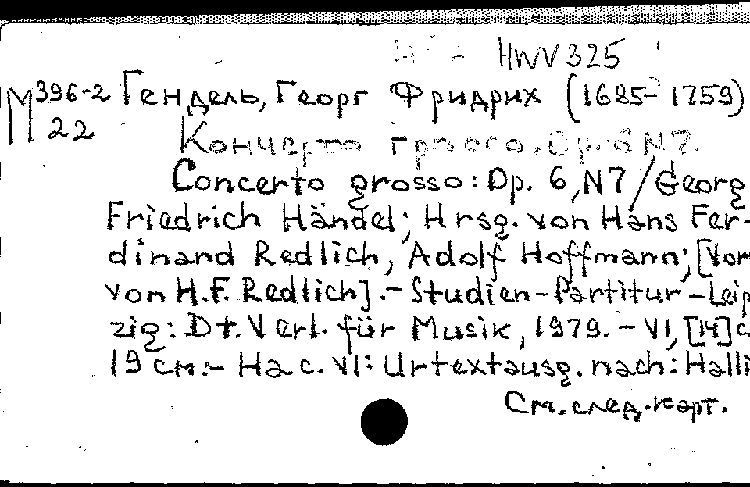 HWV 325
М 396-2 Гендель, Георг Фридрих (1685-1759)
22
Кончерто гроссо. Op. 6 N7.
Concerto grosso: Op. 6, N7 / Georg
Friedrich Händel; Hrsg. von Hans Fer-
dinand Redlich, Adolf Hoffmann; [Vor
von H.F. Redlich]. - Studien-Partitur - Leip
zig: Dt. Verl. für Musik, 1979. - VI, [14] c
19 см. - На с. VI: Urtextausg. nach: Halli
См. след. карт.